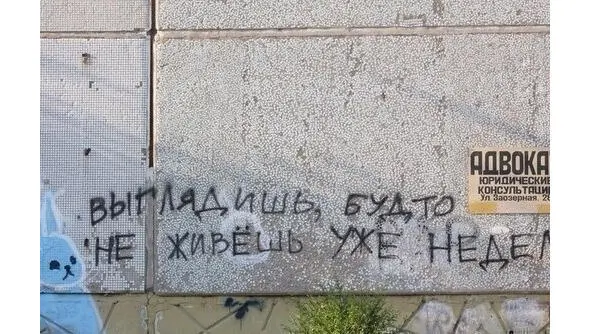 ВЫГЛЯДИШЬ, БУДТО
НЕ ЖИВЁШЬ УЖЕ НЕДЕЛ
АДВОКА
ЮРИДИЧЕСКИЕ
КОНСУЛЬТАЦИ
Ул Заозерная.